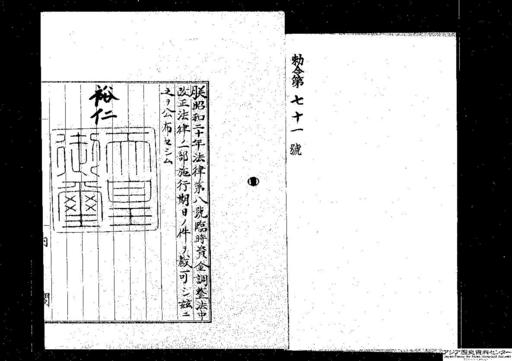 勅令第七十一號
朕昭和二十年法律第八號臨時資金調整法中
改正法律ノ一部施行期日ノ件ヲ裁可シ茲ニ
之ヲ公布セシム
裕仁
天皇
御璽
内
閣
アジア歴史資料センター